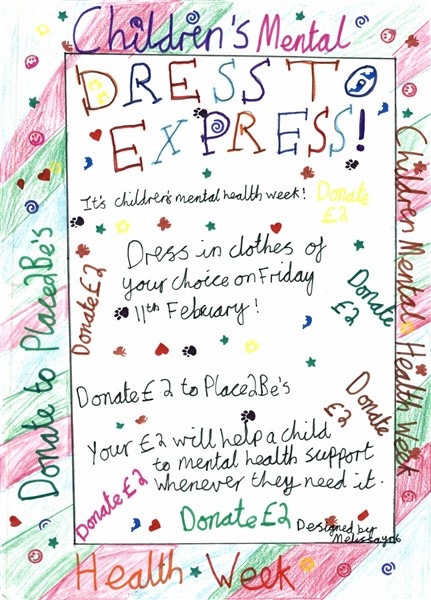 Children's Mental
DRESS TO
EXPRESS!
It's children's mental health week!
Donate
£2
Dress in clothes of
your choice on Friday
11th February!
Donate £2
Donate
£2
Donate £2 to Place2Be's
Donate
£2
Your £2 will help a child
to mental health support
whenever they need it.
Donate £2
Donate £2
Designed by
Melissa yr6
Health Week
Donate to Place2Be's
Children Mental Health Week